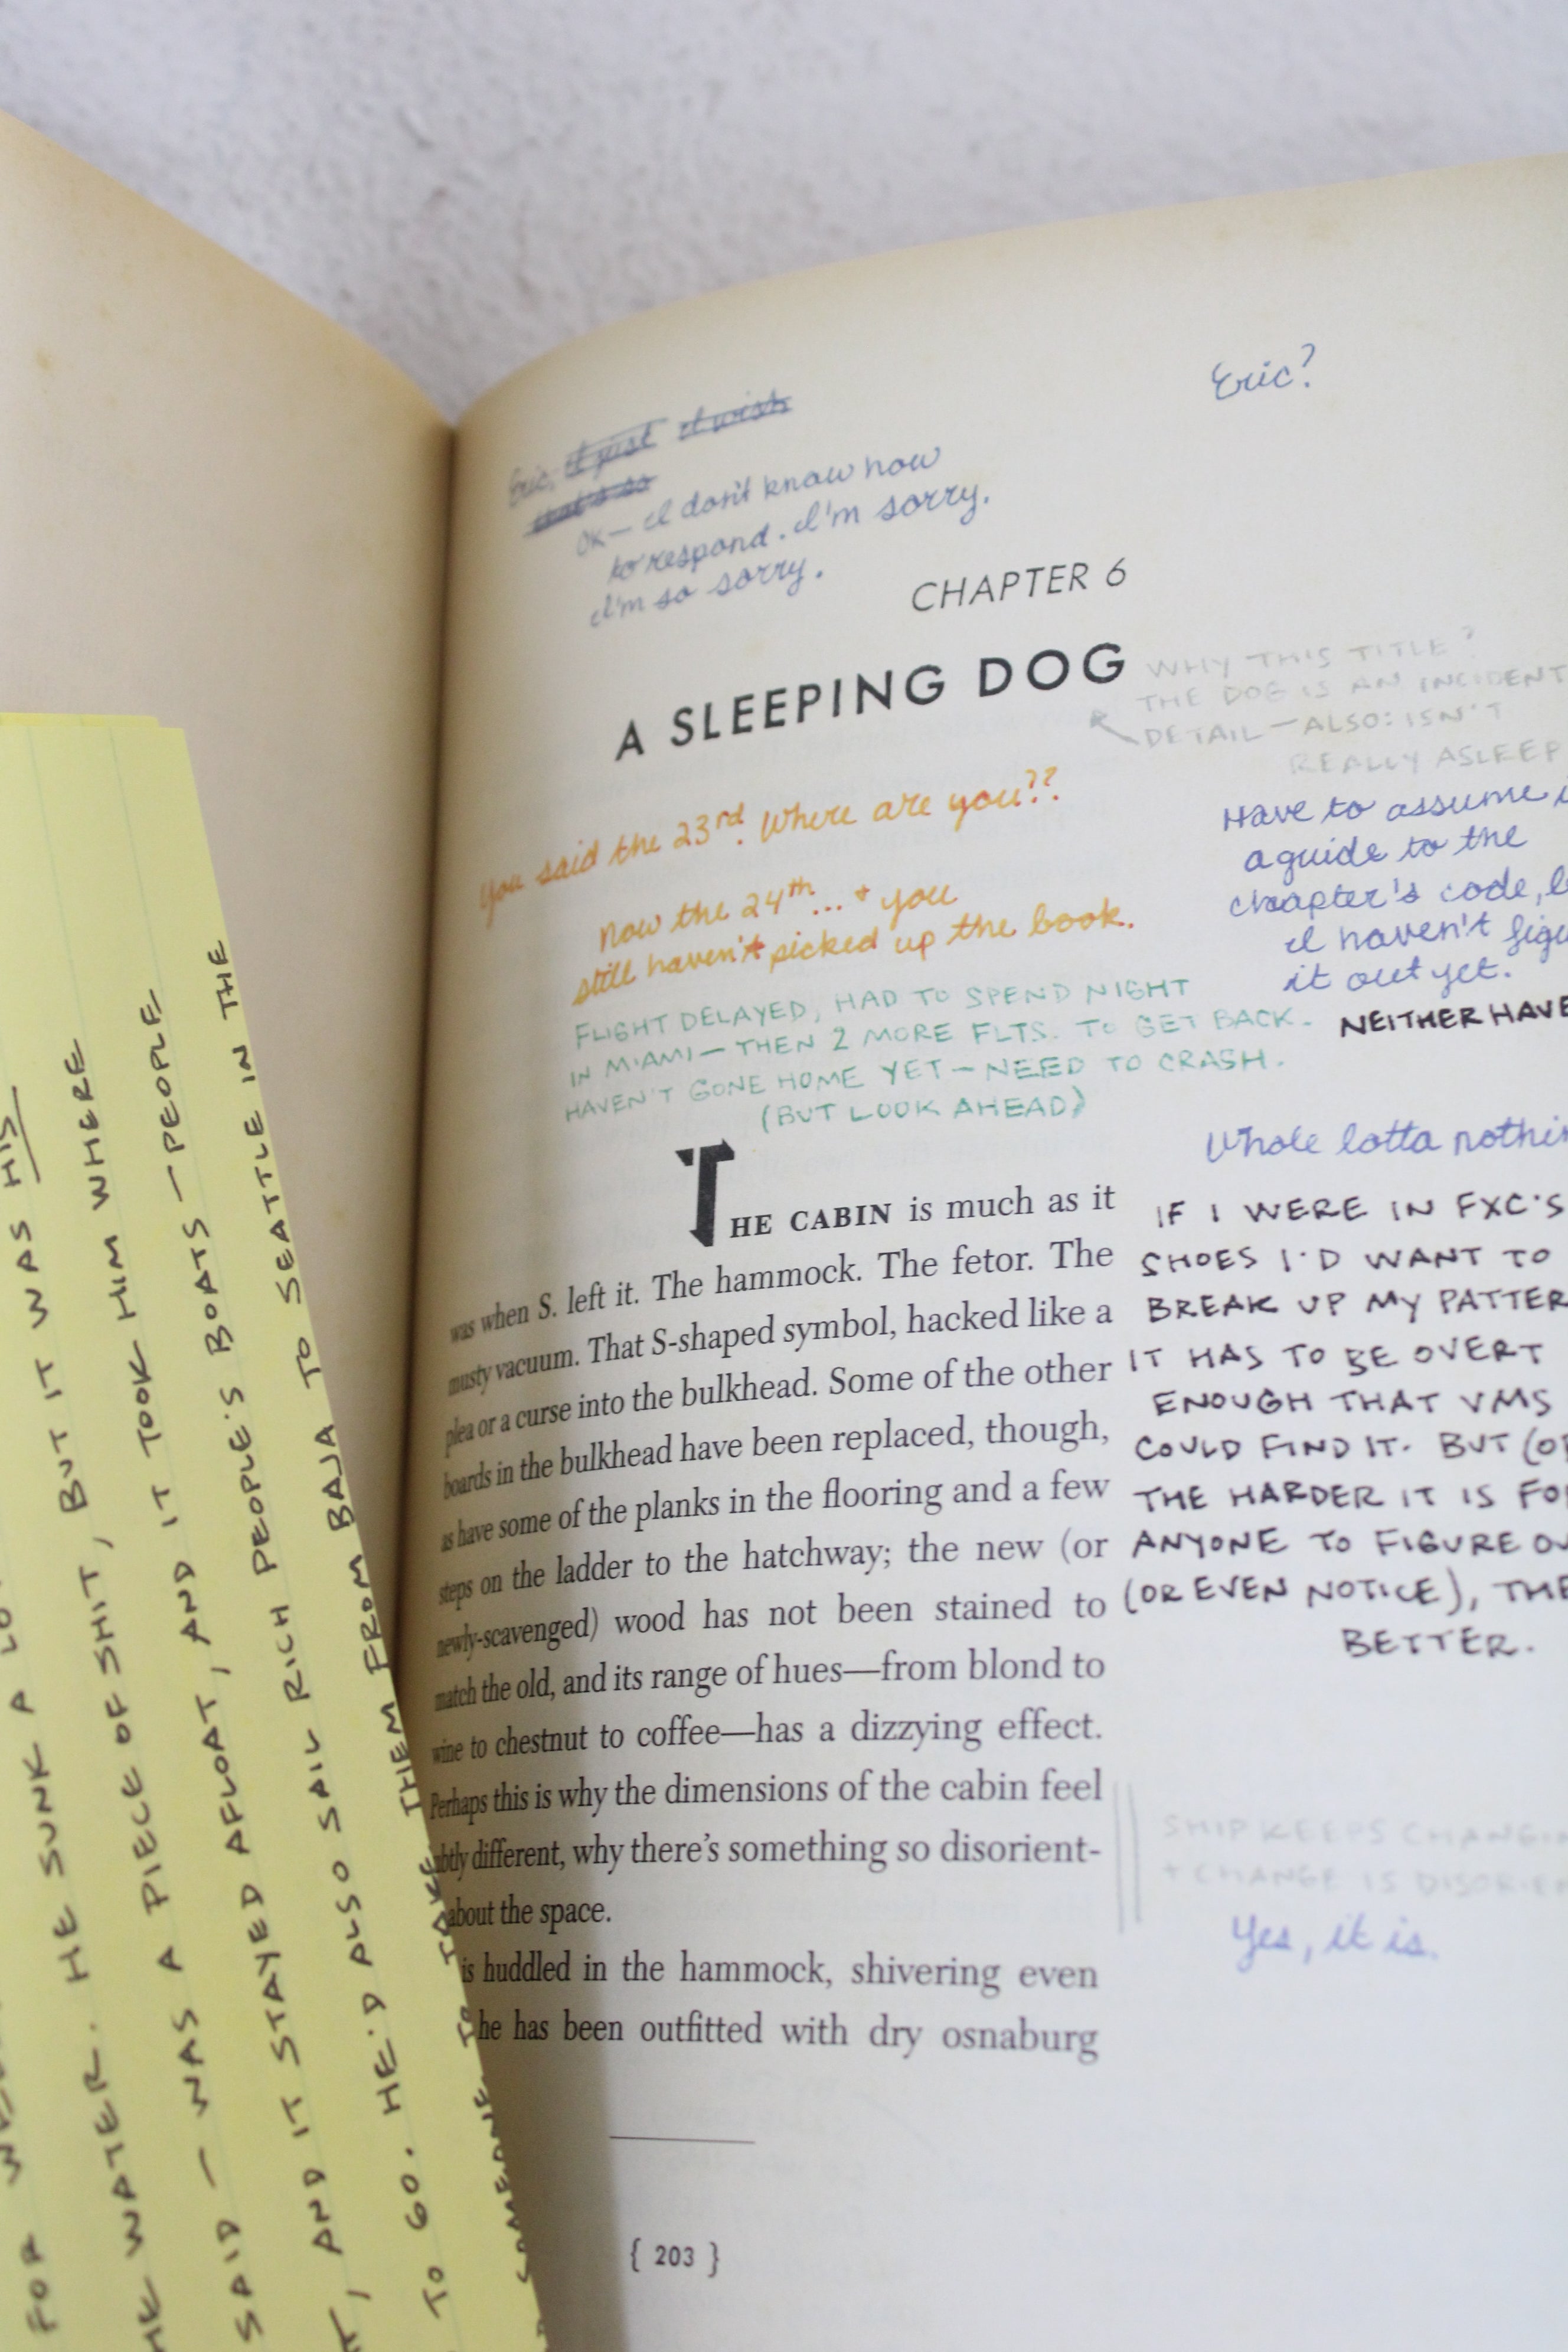 Eric?
Eric, I just I wish
that's so
OK— I don't know how
to respond. I'm sorry.
I'm so sorry.
CHAPTER 6
A SLEEPING DOG
WHY THIS TITLE?
THE DOG IS AN INCIDENT
DETAIL—ALSO: ISN'T
REALLY ASLEEP
You said the 23rd. Where are you??
Now the 24th... + you
still haven't picked up the book.
Have to assume
a guide to the
chapter's code,
I haven't
it out yet.
NEITHER HAVE
FLIGHT DELAYED, HAD TO SPEND NIGHT
IN MIAMI—THEN 2 MORE FLTS. TO GET BACK.
HAVEN'T GONE HOME YET—NEED TO CRASH.
(BUT LOOK AHEAD)
Whole lotta
IF I WERE IN FXC'S
SHOES I'D WANT TO
BREAK UP MY PATTER
IT HAS TO BE OVERT
ENOUGH THAT VMS
COULD FIND IT. BUT
THE HARDER IT IS FOR
ANYONE TO FIGURE
(OR EVEN NOTICE), THE
BETTER.
THE CABIN is much as it
was when S. left it. The hammock. The fetor. The
musty vacuum. That S-shaped symbol, hacked like a
plea or a curse into the bulkhead. Some of the other
boards in the bulkhead have been replaced, though,
as have some of the planks in the flooring and a few
steps on the ladder to the hatchway; the new (or
newly-scavenged) wood has not been stained to
match the old, and its range of hues—from blond to
wine to chestnut to coffee—has a dizzying effect.
Perhaps this is why the dimensions of the cabin feel
different, why there's something so disorient-
about the space.
is huddled in the hammock, shivering even
he has been outfitted with dry osnaburg
SHIP KEEPS
+ CHANGE IS
Yes, it is.
{ 203 }
FOR
HE WATER. HE SUNK A
SAID — WAS A PIECE OF SHIT, BUT IT WAS HIS
, AND IT STAYED AFLOAT, AND IT TOOK HIM WHERE
TO GO. HE'D ALSO SAIL RICH PEOPLE'S BOATS — PEOPLE
SOMEONE TO TAKE THEM FROM BAJA TO SEATTLE IN THE